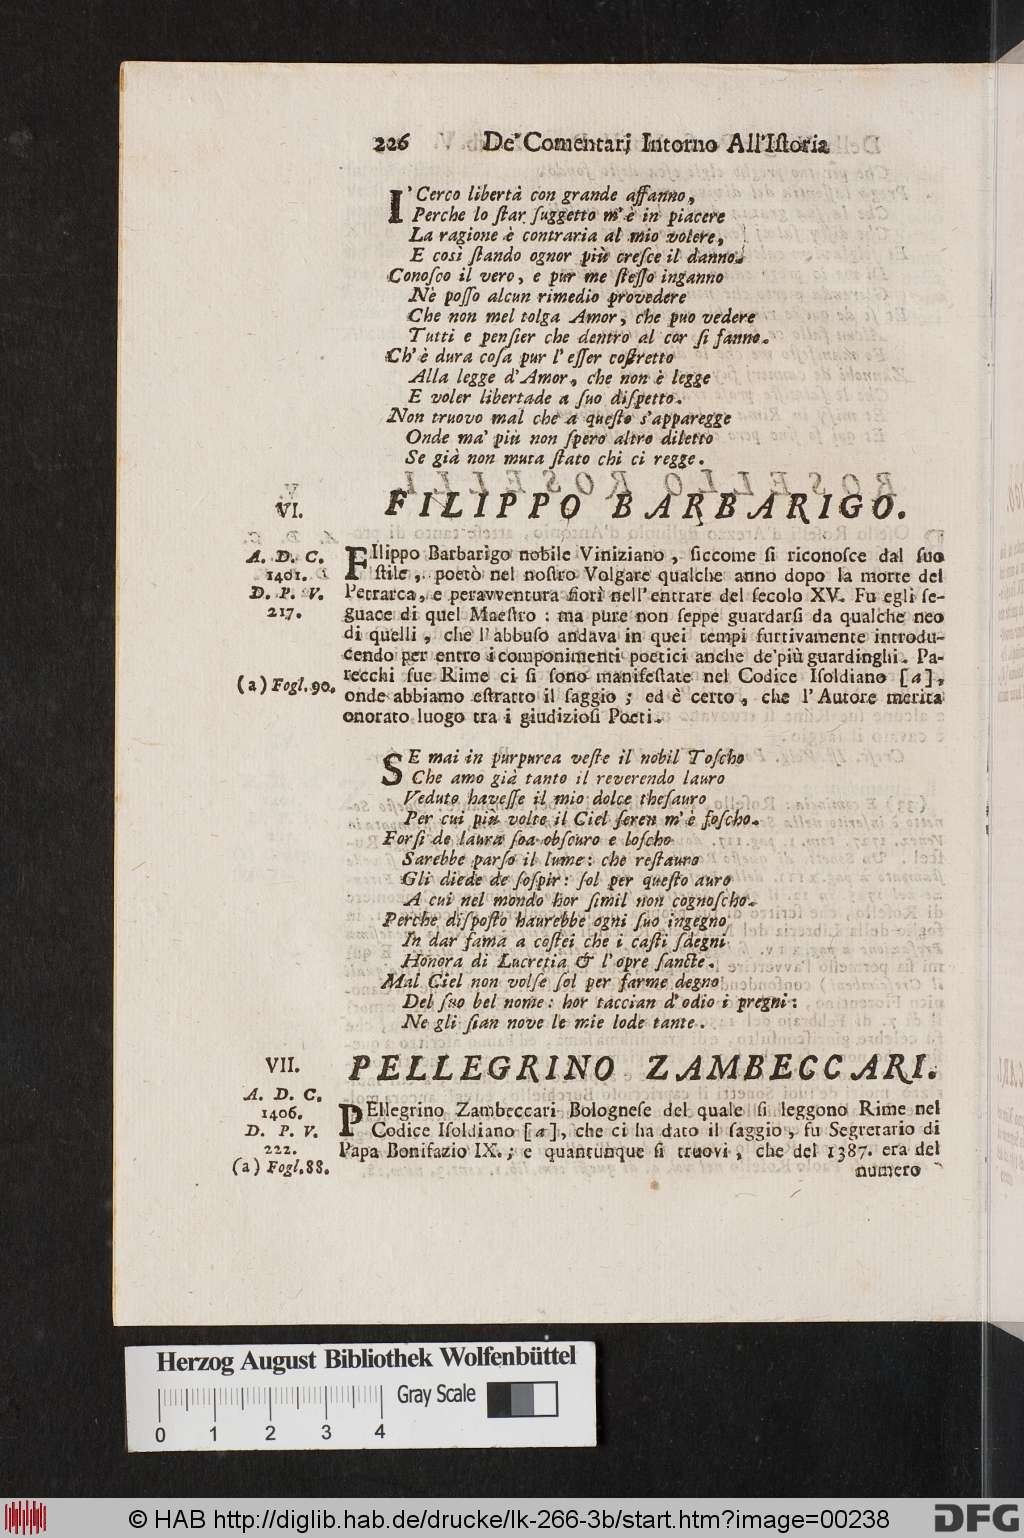 226 De' Comentarj Intorno All'Iſtoria
I' Cerco libertà con grande affanno,
Perche lo ſtar ſuggetto m'è in piacere
La ragione è contraria al mio volere,
E così ſtando ognor più creſce il danno.
Conoſco il vero, e pur me ſteſſo inganno
Nè poſſo alcun rimedio provedere
Che non mel tolga Amor, che puo vedere
Tutti e penſier che dentro al cor ſi fanno.
Ch'è dura coſa pur l'eſſer coſtretto
Alla legge d'Amor, che non è legge
E voler libertade a ſuo diſpetto.
Non truovo mal che a queſto s'apparegge
Onde ma' più non ſpero altro diletto
Se già non muta ſtato chi ci regge.
VI. FILIPPO BARBARIGO.
A. D. C.
1401.
D. P. V.
217.
FIlippo Barbarigo nobile Viniziano, ſiccome ſi riconoſce dal ſuo
ſtile, poetò nel noſtro Volgare qualche anno dopo la morte del
Petrarca, e peravventura fiorì nell'entrare del ſecolo XV. Fu egli ſe-
guace di quel Maeſtro: ma pure non ſeppe guardarſi da qualche neo
di quelli, che l'abbuſo andava in quei tempi furtivamente introdu-
cendo per entro i componimenti poetici anche de' più guardinghi. Pa-
recchi ſue Rime ci ſi ſono manifeſtate nel Codice Iſoldiano [a],
onde abbiamo eſtratto il ſaggio; ed è certo, che l'Autore merita
onorato luogo tra i giudizioſi Poeti.
(a) Fogl. 90.
SE mai in purpurea veſte il nobil Toſcho
Che amo già tanto il reverendo lauro
Veduto haveſſe il mio dolce theſauro
Per cui più volte il Ciel ſeren m'è foſcho.
Forſi de laura ſoa obſcuro e loſcho
Sarebbe parſo il lume: che reſtauro
Gli diede de ſoſpir: ſol per queſto auro
A cui nel mondo hor ſimil non cognoſcho.
Perche diſpoſto haurebbe ogni ſuo ingegno
In dar fama a coſtei che i caſti ſdegni
Honora di Lucretia & l'opre ſancte.
Mal Ciel non volſe ſol per farme degno
Del ſuo bel nome: hor taccian d'odio i pregni:
Ne gli ſian nove le mie lode tante.
VII. PELLEGRINO ZAMBECCARI.
A. D. C.
1406.
D. P. V.
222.
(a) Fogl. 88.
PEllegrino Zambeccari Bologneſe del quale ſi leggono Rime nel
Codice Iſoldiano [a], che ci ha dato il ſaggio, fu Segretario di
Papa Bonifazio IX.; e quantunque ſi truovi, che del 1387. era del
numero
Herzog August Bibliothek Wolfenbüttel
Gray Scale
0 1 2 3 4
© HAB http://diglib.hab.de/drucke/lk-266-3b/start.htm?image=00238
DFG